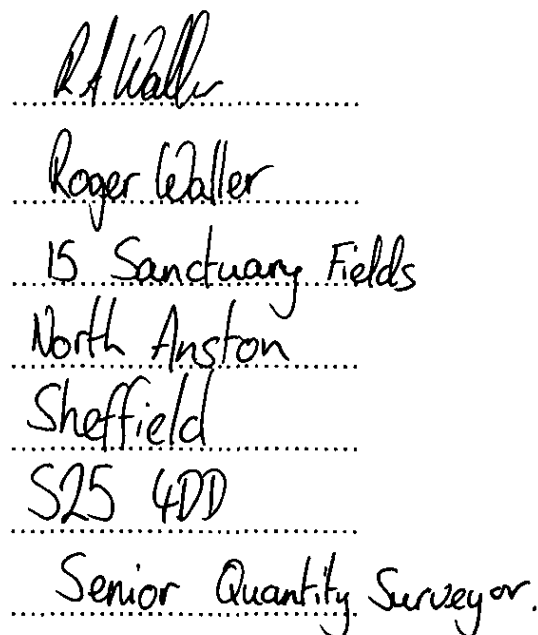 R A Waller
Roger Waller
15 Sanctuary Fields
North Anston
Sheffield
S25 4DD
Senior Quantity Surveyor.